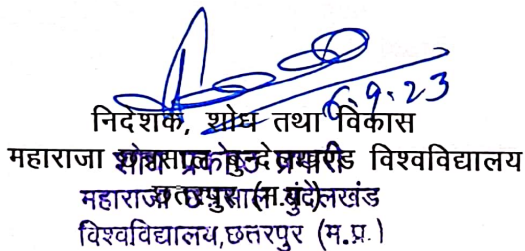 6.9.23
निदेशक, शोध तथा विकास
महाराजा छत्रसाल बुन्देलखण्ड विश्वविद्यालय
छतरपुर (म.प्र.)
शोध प्रकोष्ठ प्रभारी
महाराजा छत्रसाल बुंदेलखंड
विश्वविद्यालय,छतरपुर (म.प्र.)